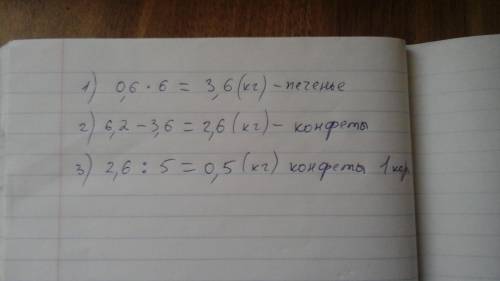 1) 0,6 · 6 = 3,6 (кг) - печенье
2) 6,2 - 3,6 = 2,6 (кг) - конфеты
3) 2,6 : 5 = 0,5 (кг) конфеты 1 кор